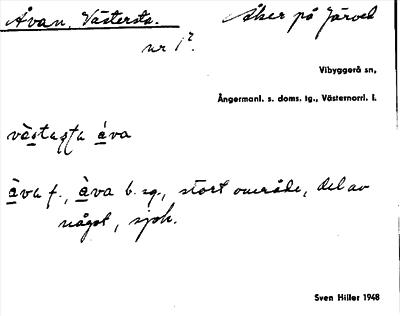 Åvan, Västersta.
Åker på Järved
nr 1?.
Vibyggerå sn,
Ångermanl. s. doms. tg., Västernorrl. l.
västaṣṭa åva
åva f., åva b. sg., stort område, del av
något, sjok.
Sven Hiller 1948